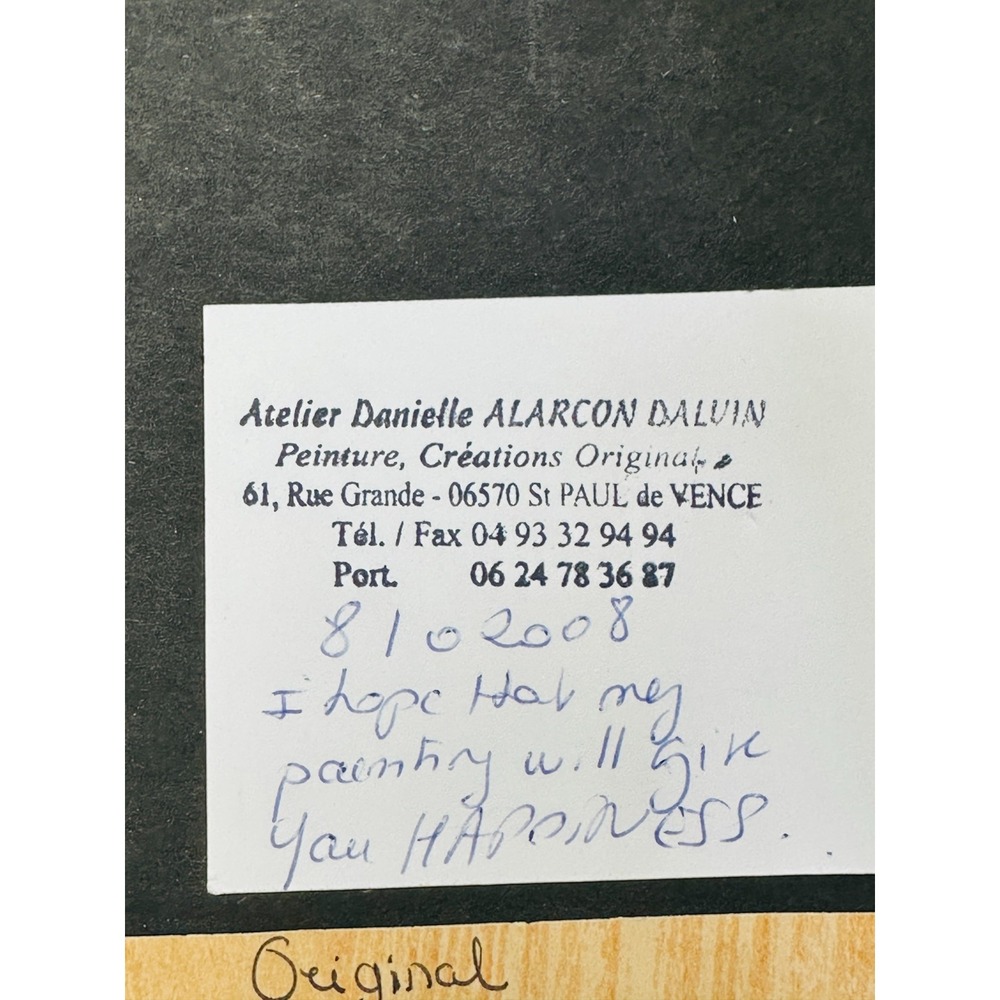 Atelier Danielle ALARCON DALVIN
Peinture, Créations Originales
61, Rue Grande - 06570 St PAUL de VENCE
Tél. / Fax 04 93 32 94 94
Port. 06 24 78 36 87
8 10 2008
I hope that my
painting will give
you HAPPINESS.
Original